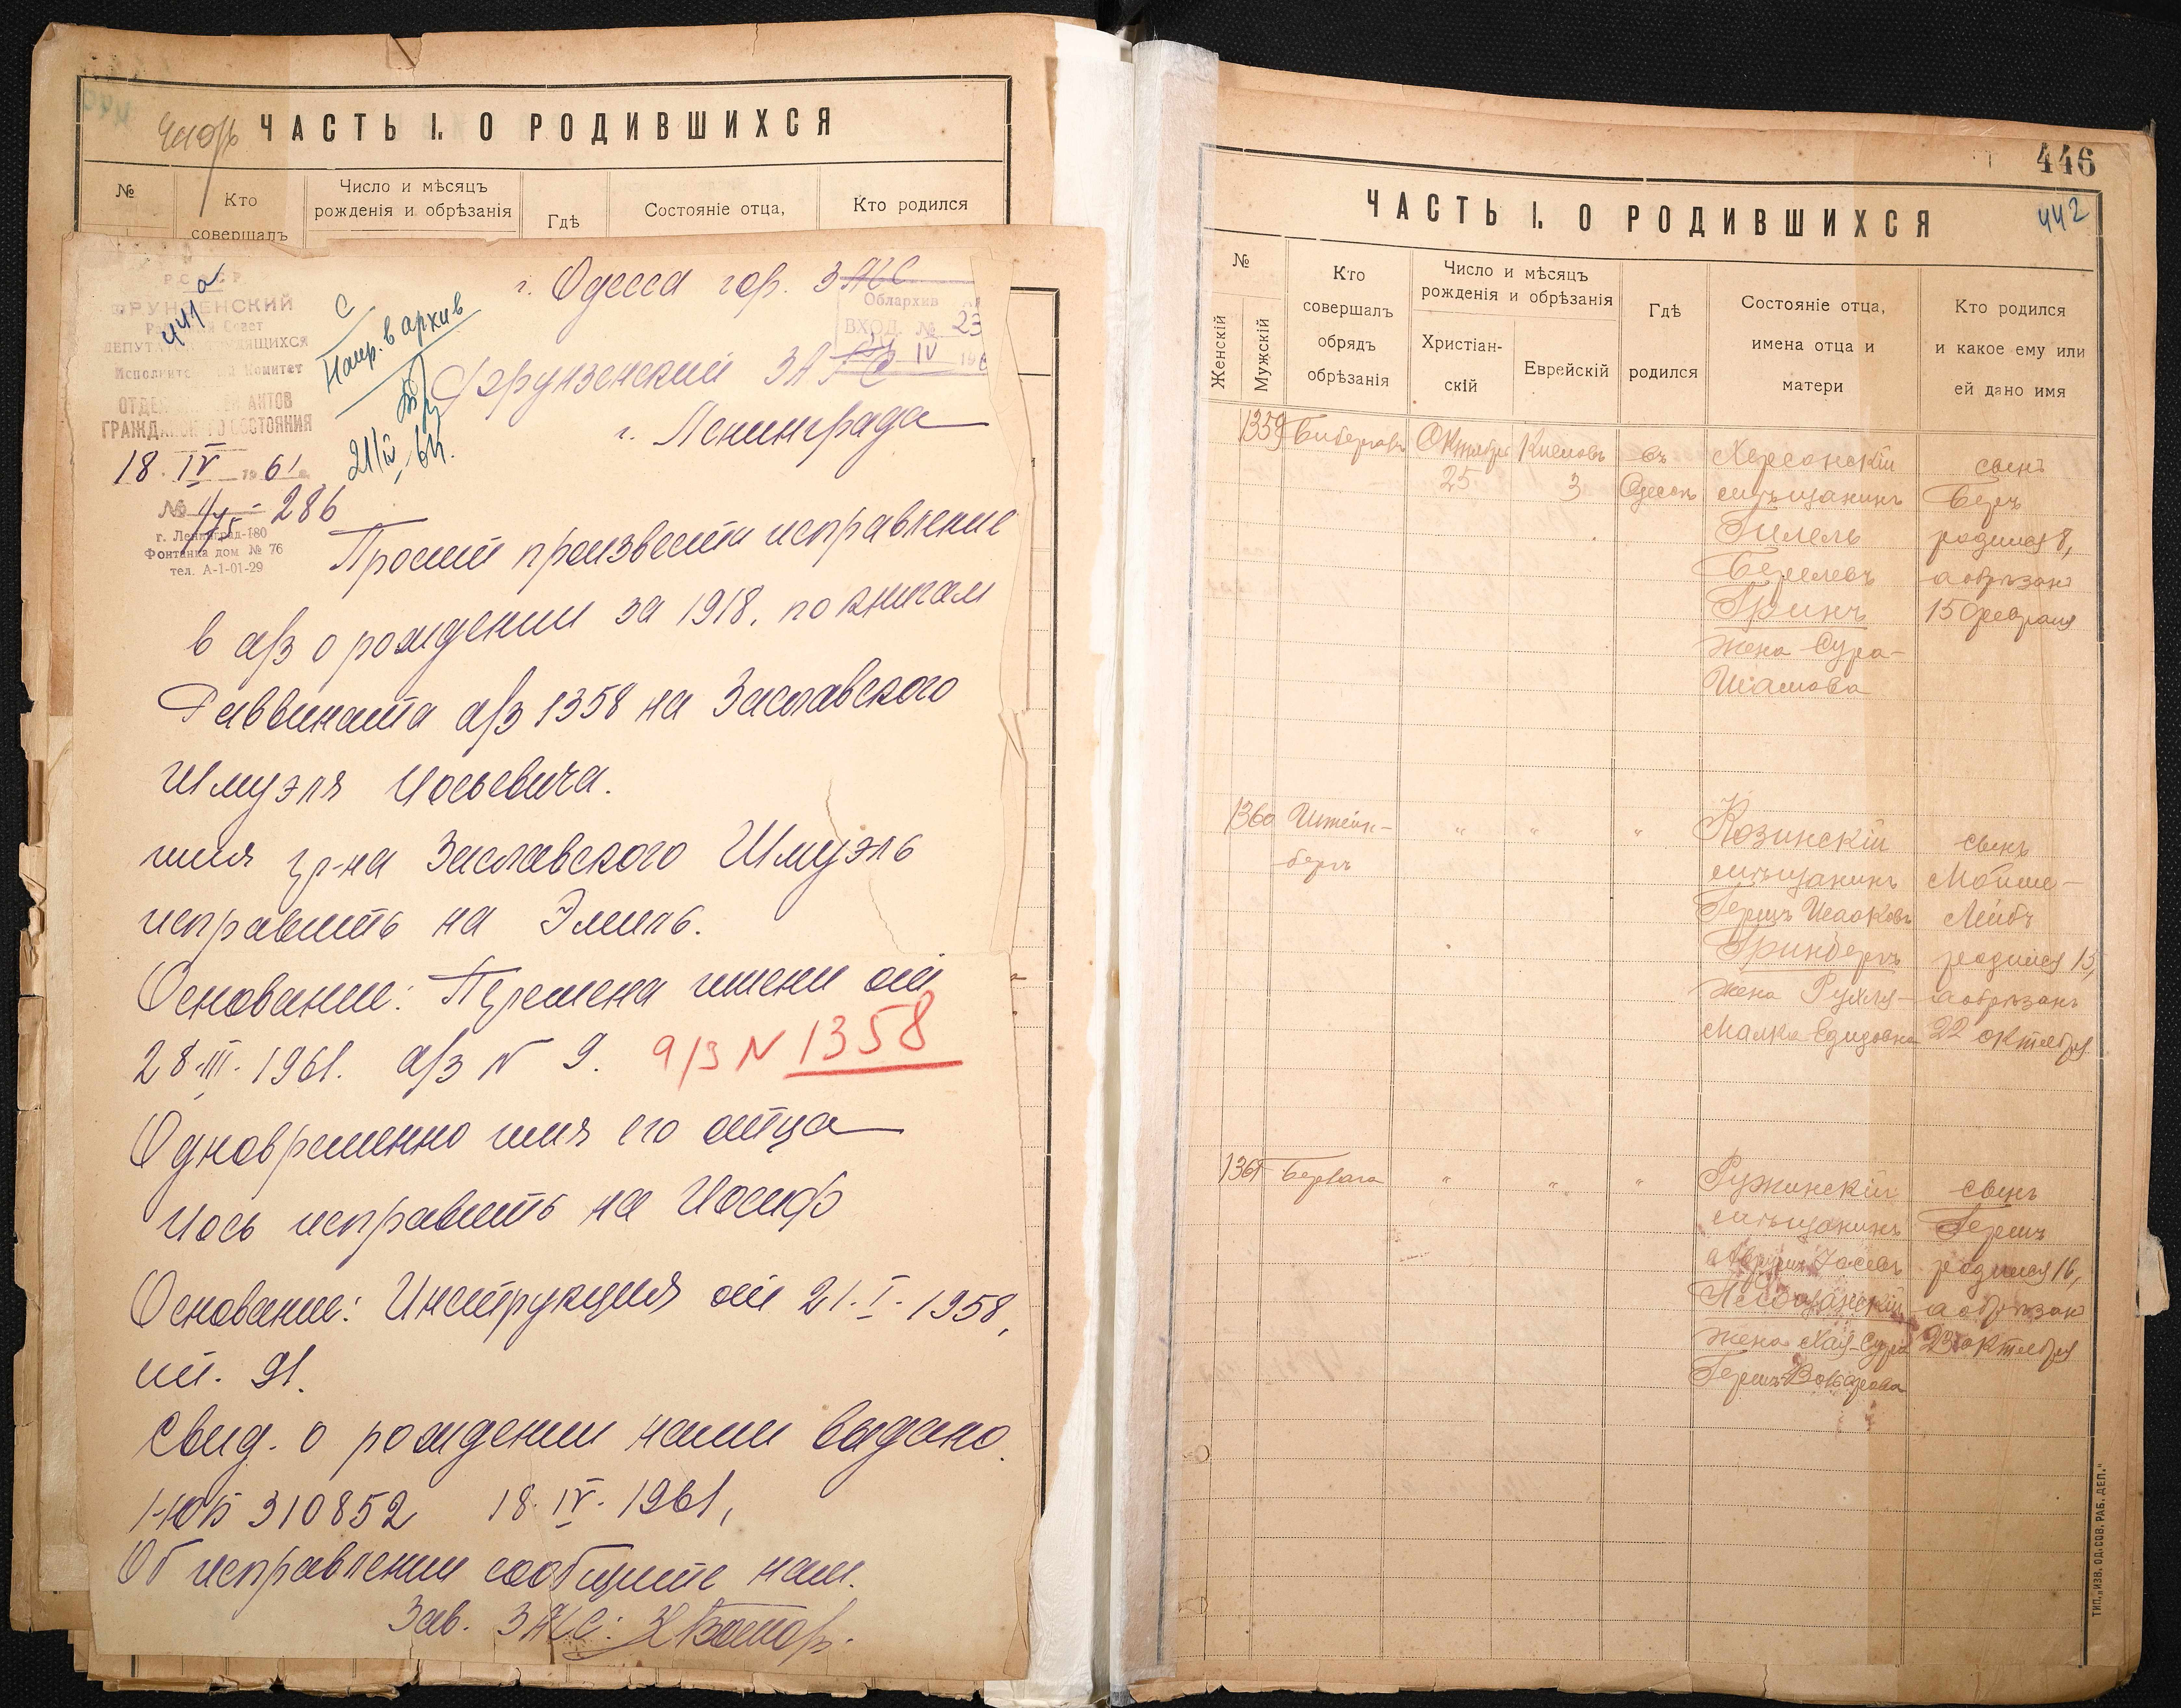 ЧАСТЬ I. О РОДИВШИХСЯ
№
Кто
совершалъ
Число и мѣсяцъ
рожденія и обрѣзанія
Гдѣ
Состояніе отца,
Кто родился
РСФСР
ФРУНЗЕНСКИЙ
Районный Совет
ДЕПУТАТОВ ТРУДЯЩИХСЯ
Исполнительный Комитет
ОТДЕЛ ЗАПИСЕЙ АКТОВ
ГРАЖДАНСКОГО СОСТОЯНИЯ
441а
18. IV 1961 г.
№ 286
г. Ленинград-180
Фонтанка дом № 76
тел. А-1-01-29
С
Напр. в архив
21/IV-61.
г. Одесса гор. ЗАГС
Облархив
ВХОД. № 23
IV 196
Фрунзенский ЗАГС
г. Ленинграда
Просит произвести исправление
в а/з о рождении за 1918. по книгам
Раввината а/з 1358 на Заславского
Шмуэля Иосьевича.
имя гр-на Заславского Шмуэль
исправить на Эмиль.
Основание: Перемена имени от
28.III.1961. а/з N 9. а/з N 1358
Одновременно имя его отца
Иось исправить на Иосиф
Основание: Инструкция от 21.I.1958,
ст. 91.
Свид. о рождении нами выдано.
I-ЮБ 310852 18.IV.1961,
Об исправлении сообщите нам.
Зав. ЗАГС:
446
442
ЧАСТЬ I. О РОДИВШИХСЯ
№
Женскій
Мужскій
Кто
совершалъ
обрядъ
обрѣзанія
Число и мѣсяцъ
рожденія и обрѣзанія
Христіан-
скій
Еврейскій
Гдѣ
родился
Состояніе отца,
имена отца и
матери
Кто родился
и какое ему или
ей дано имя
1359 Октября Кислевъ въ Херсонскій сынъ
25 3 Одессѣ мѣщанинъ Беръ
Гилель родился 8,
Берелевъ а обрѣзанъ
Гринъ 15 февраля
жена Сура-
1360 Штейн- " " " Козинскій сынъ
бергъ мѣщанинъ Мойше-
Гершъ Исааковъ Лейбъ
Гринбергъ родился 15,
жена Рухля- а обрѣзанъ
Малка 22 октября
1361 " " " Ружинскій сынъ
мѣщанинъ Гершъ
родился 16,
а обрѣзанъ
жена Хая-Сура 23 октября
ТИП. „ИЗВ. ОД. СОВ. РАБ. ДЕП."